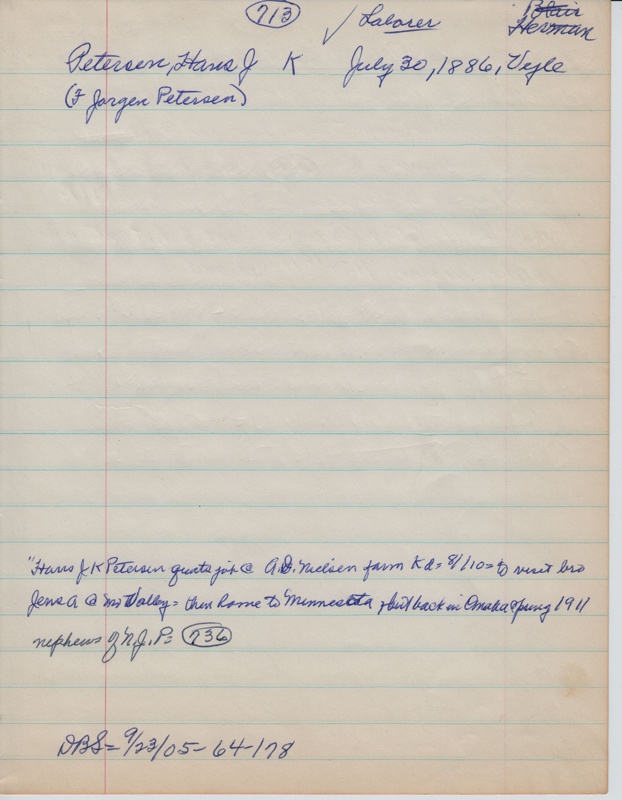 713 ✓ Laborer Blair
Herman
Petersen, Hans J K July 30, 1886, Vejle
(F Jorgen Petersen)
"Hans J. K Petersen quits job @ A.D. Nielsen farm Kd= 8/1/10= to visit bro
Jens A @ Mo Valley= then home to Minnesota, but back in Omaha spring 1911
nephews of N.J.P= 736
DBS= 9/23/05- 64-178